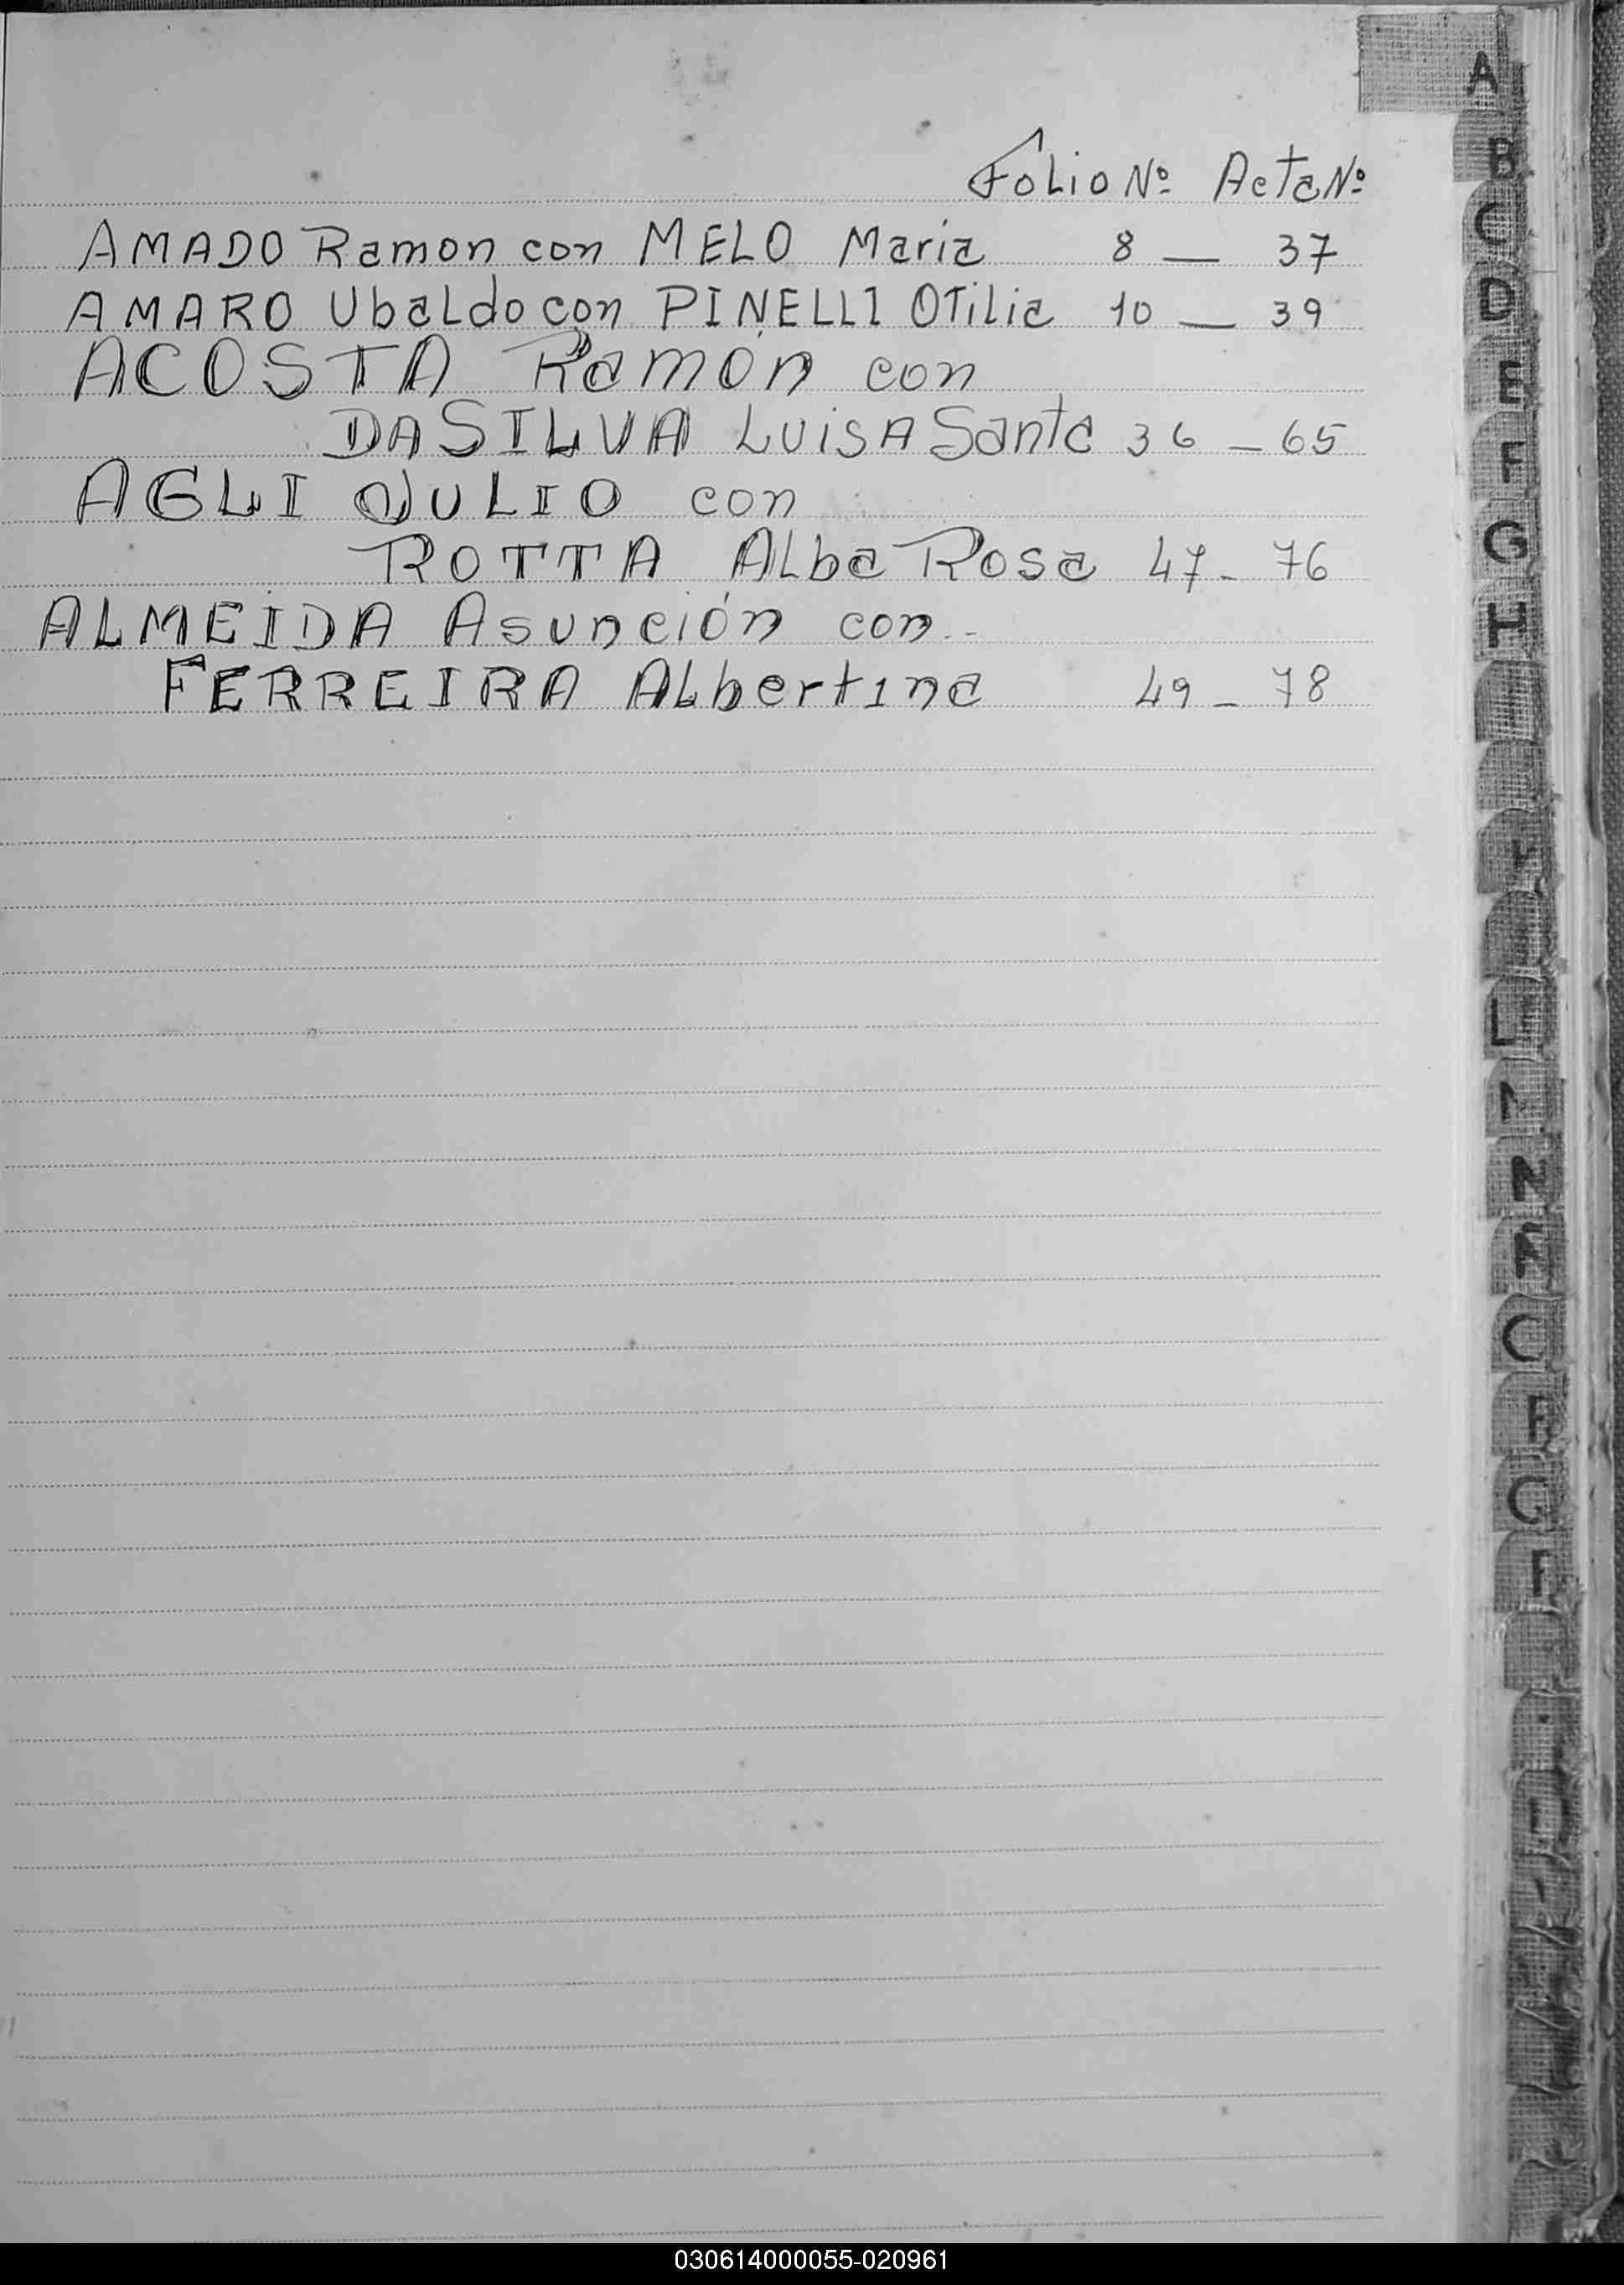 Folio Nº Acta Nº
AMADO Ramon con MELO Maria 8 — 37
AMARO Ubaldo con PINELLI OTilia 10 — 39
ACOSTA Ramón con
DASILVA LuisA Santa 36 - 65
AGLI JULIO con
ROTTA Alba Rosa 47 - 76
ALMEIDA Asunción con..
FERREIRA Albertina 49 - 78
A
B
C
D
E
F
G
H
L
N
030614000055-020961